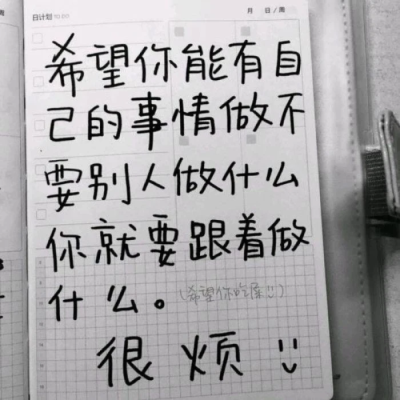 日计划 TO DO 月 日/周
希望你能有自
己的事情做不
要别人做什么
你就要跟着做
什么。(希望你吃屎!!)
很烦